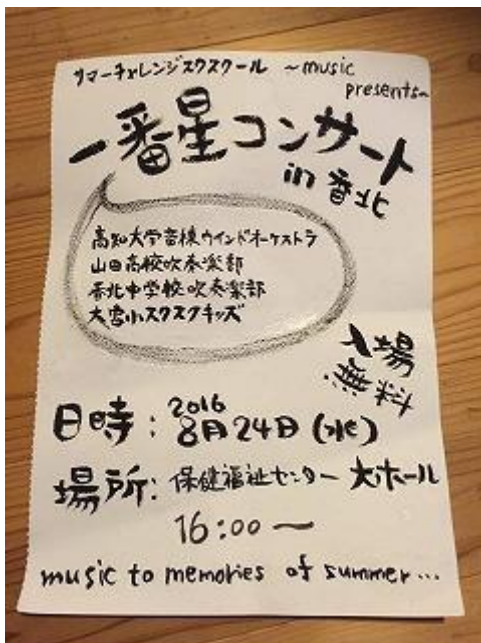 サマーチャレンジスクスクール ～music presents～
一番星コンサート
in 香北
高知大学音棟ウインドオーケストラ
山田高校吹奏楽部
香北中学校吹奏楽部
大宮小スクスクキッズ
入場
無料
日時：2016 8月24日（水）
場所：保健福祉センター 大ホール
16:00～
music to memories of summer...